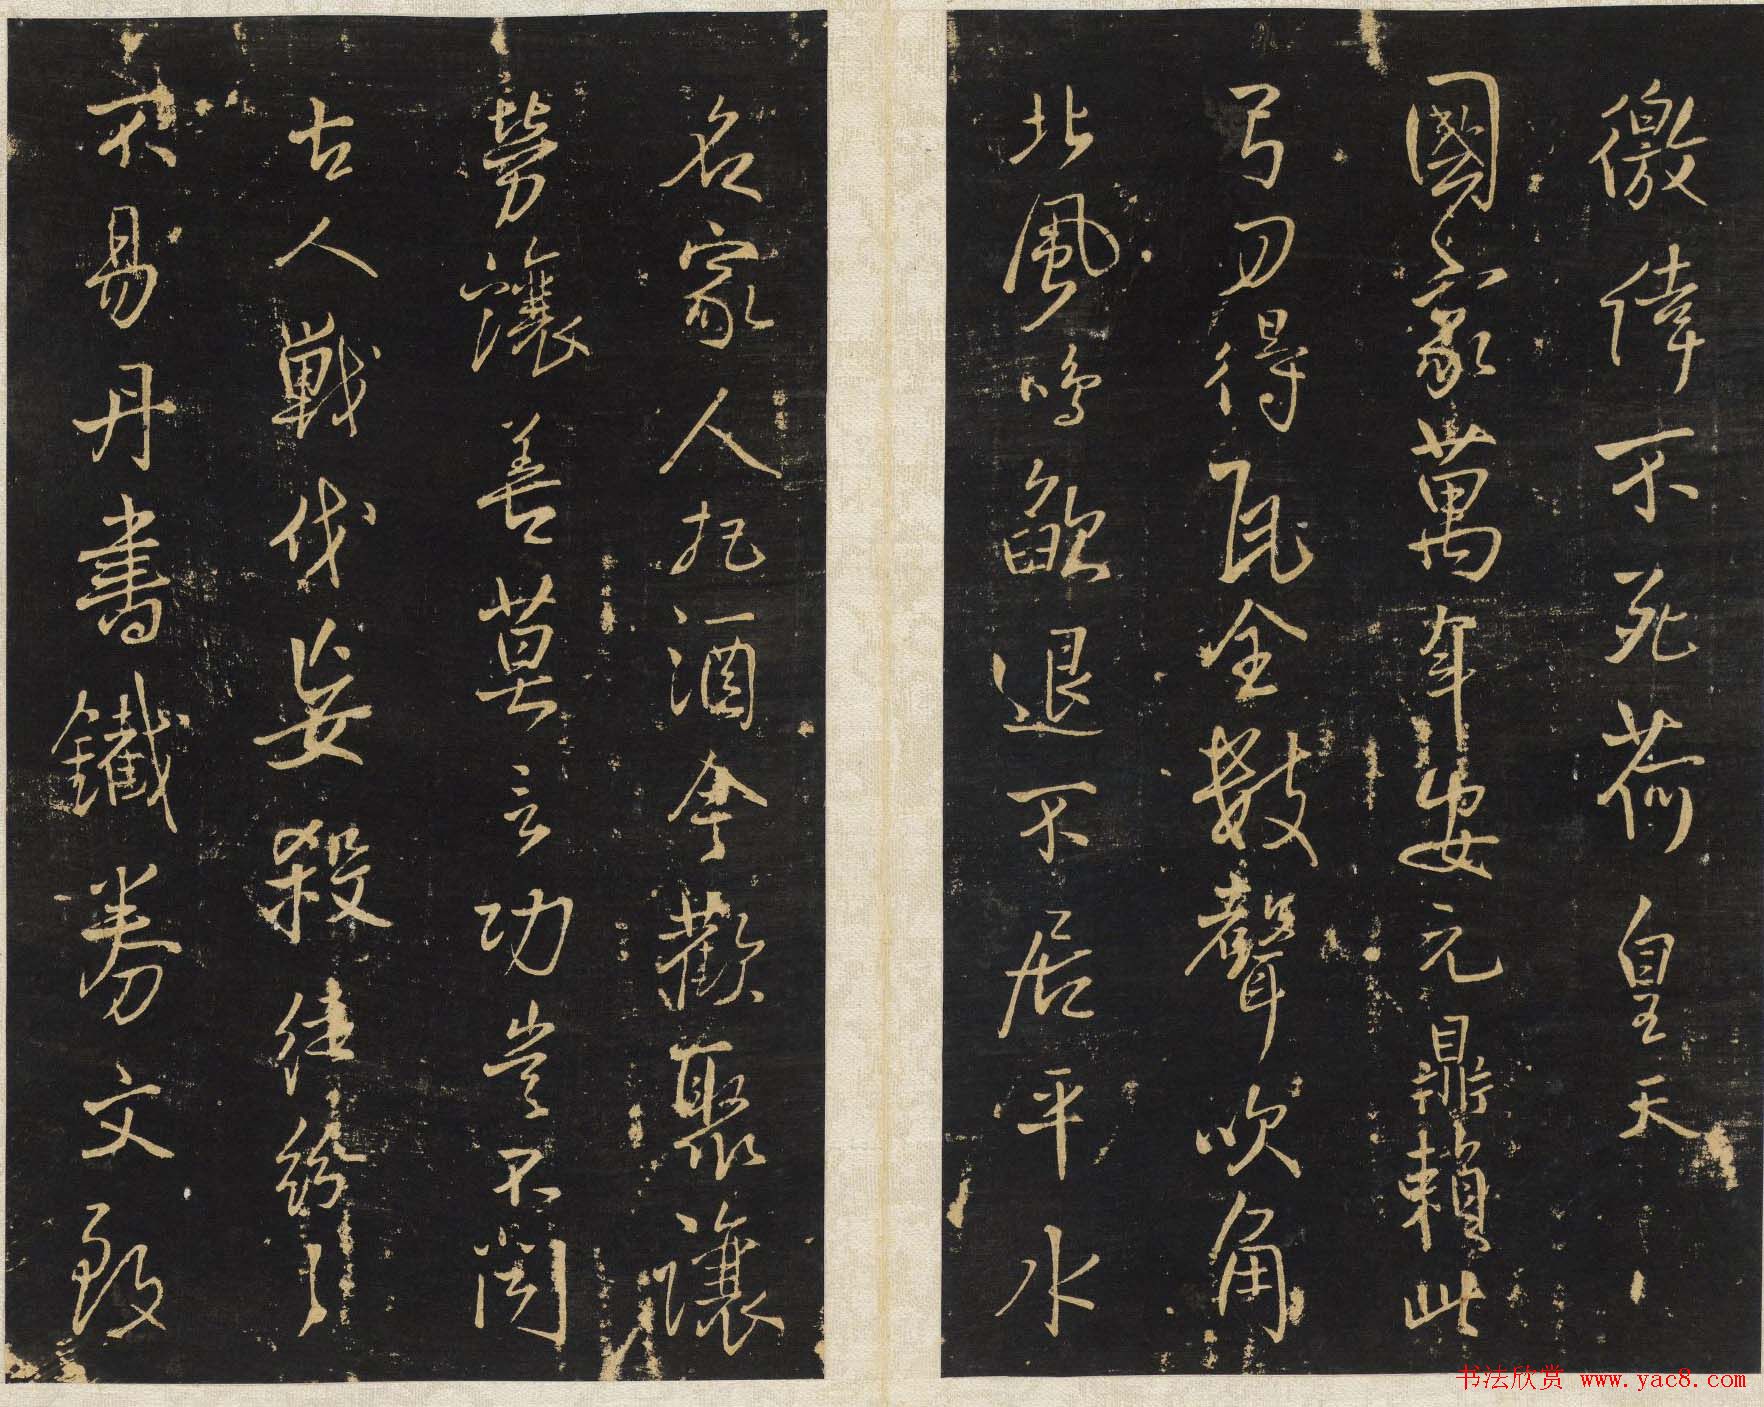 儌倖不死荷皇天
國家萬年安元鼎賴此
弓刀得瓦全數聲吹角
北風鳴欿退不居平水
名家人把酒今歡聚讓
勞讓善莫言功豈不聞
古人戰伐妄殺徒紛々
不易丹書鐵券文致
书法欣赏 www.yac8.com